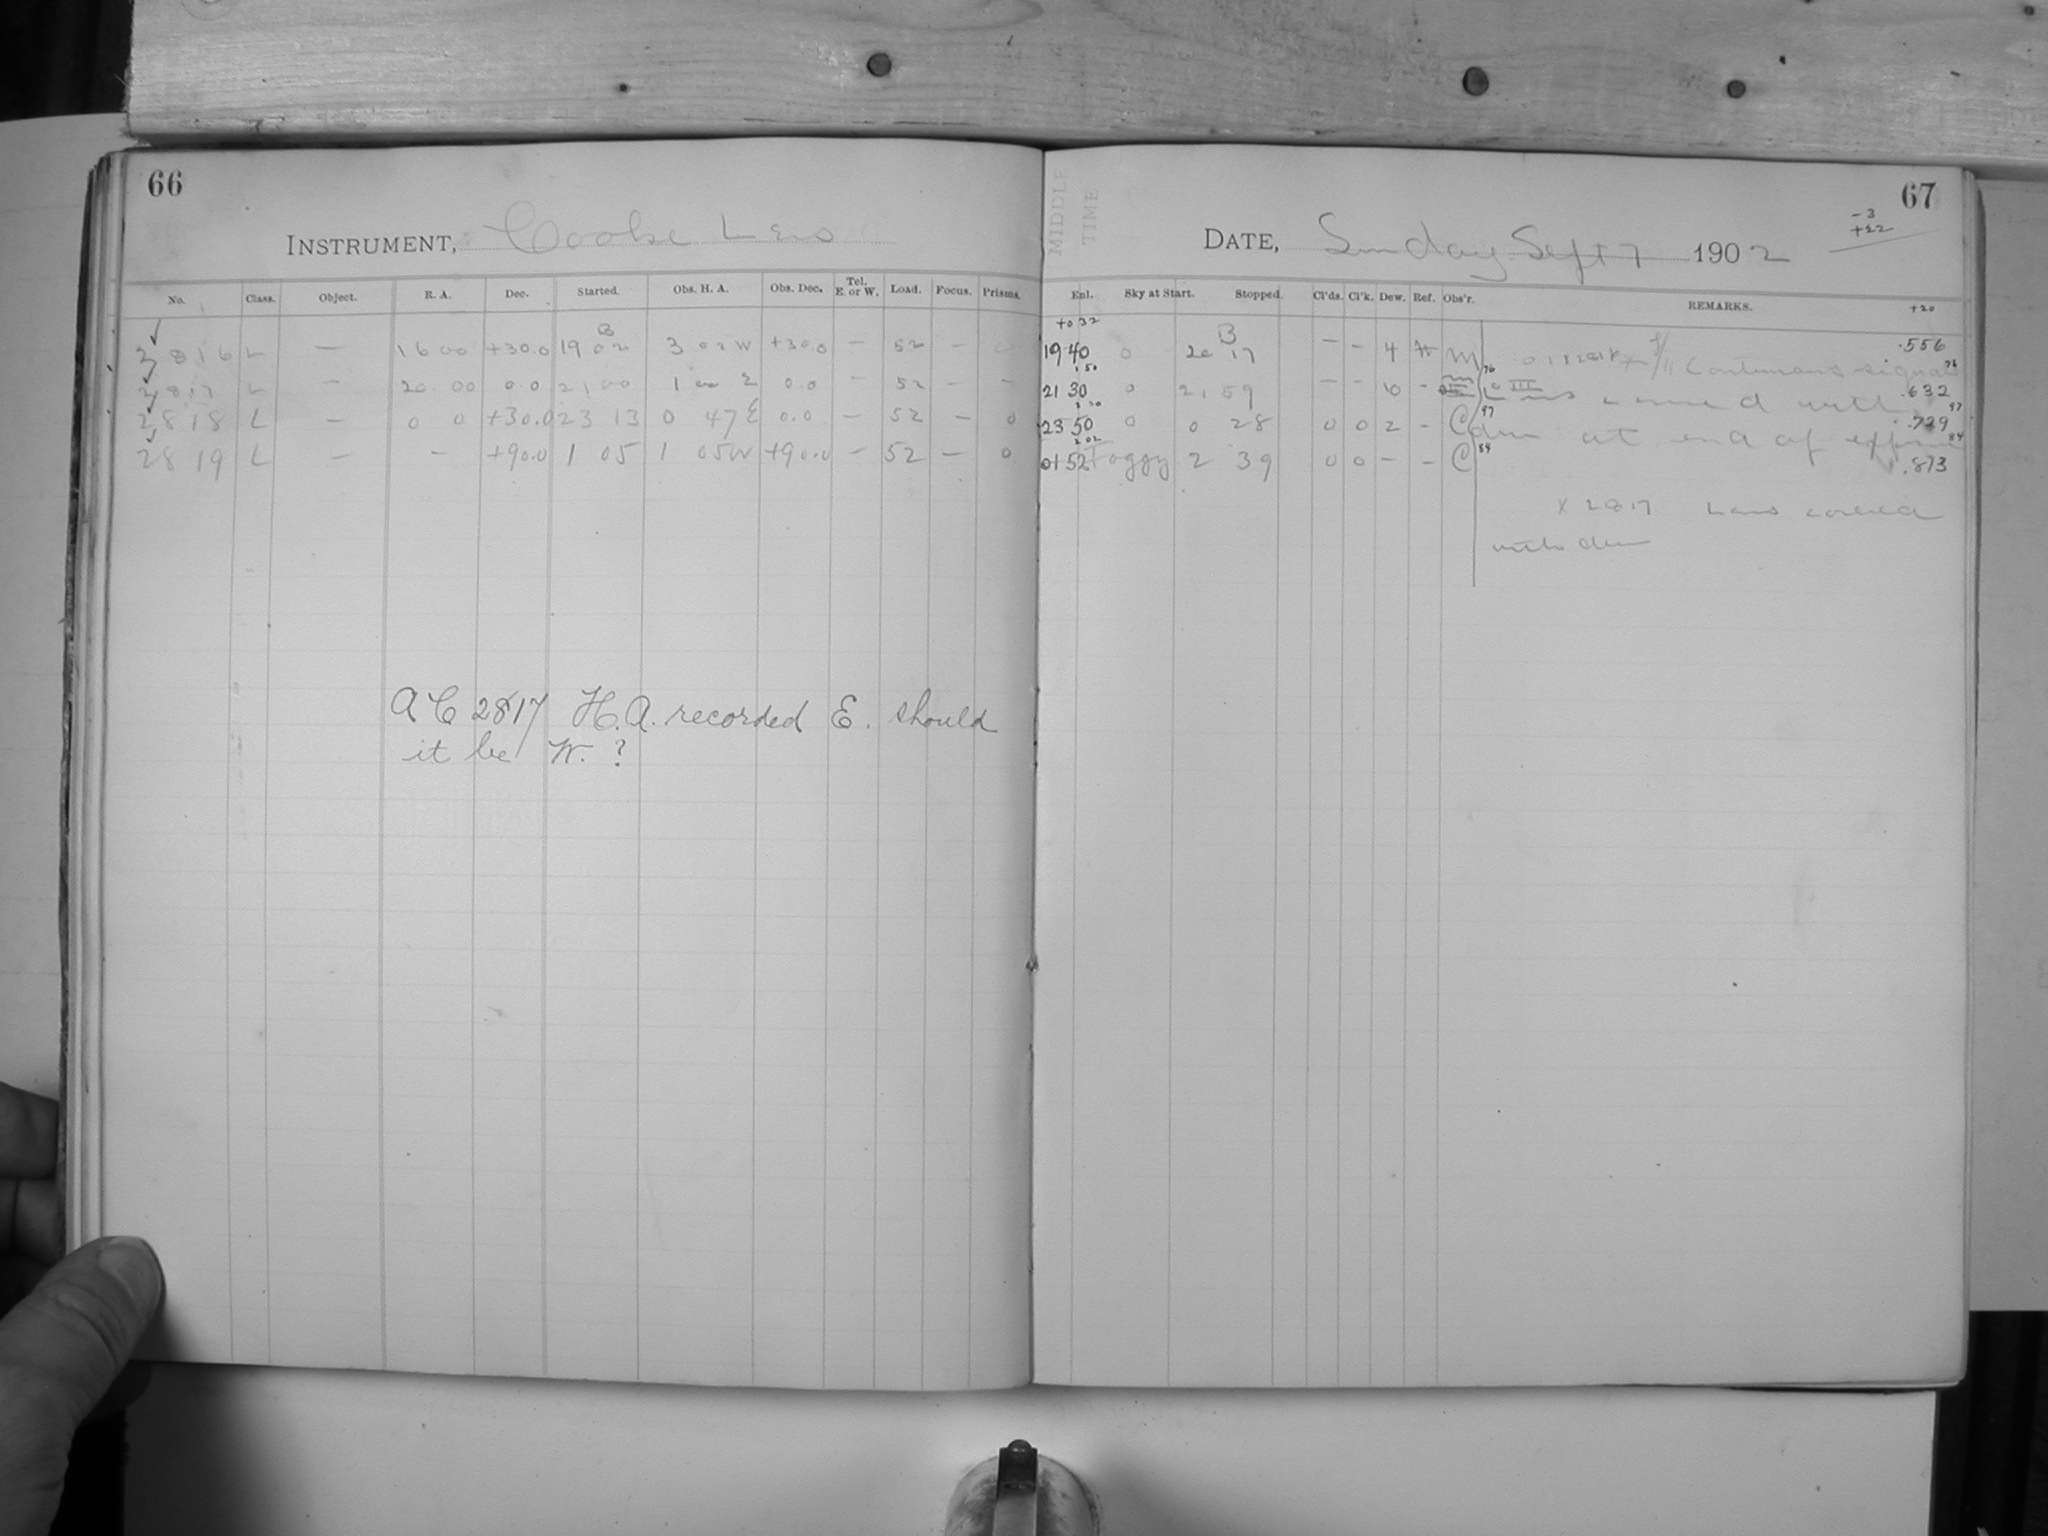 66
INSTRUMENT, Cooke Lens
No. Class. Object. R. A. Dec. Started. Obs. H. A. Obs. Dec. Tel. E. or W. Load. Focus. Prisms.
2816 L — 16 00 +30.0 19 02 3 02 W +30.0 — 52 —
2817 L — 20 00 0.0 21 00 1 00 E 0.0 — 52 — —
2818 L — 0 0 +30.0 23 13 0 47 E 0.0 — 52 — 0
2819 L — — +90.0 1 05 1 05 W +90.0 — 52 — 0
A C 2817 H.A. recorded E. should
it be W. ?
67
MIDDLE TIME
-3
+22
DATE, Sunday Sept 7 1902
Enl. Sky at Start. Stopped. Cl'ds. Cl'k. Dew. Ref. Obs'r. REMARKS. +20
+0 32 B
19 40 0 20 17 — — 4 Continuous signal .556
21 30 0 21 59 — — 10 - Lens covered with .632
23 50 0 0 28 0 0 2 - C dew at end of .729
01 52 Foggy 2 39 0 0 — — C .873
X 2817 Lens covered
with dew